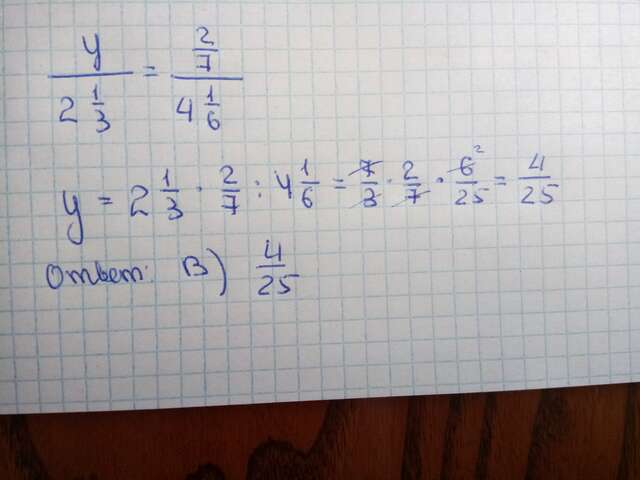 y / 2 1/3 = 2/7 / 4 1/6
y = 2 1/3 · 2/7 : 4 1/6 = 7/3 · 2/7 · 6²/25 = 4/25
Ответ: В) 4/25